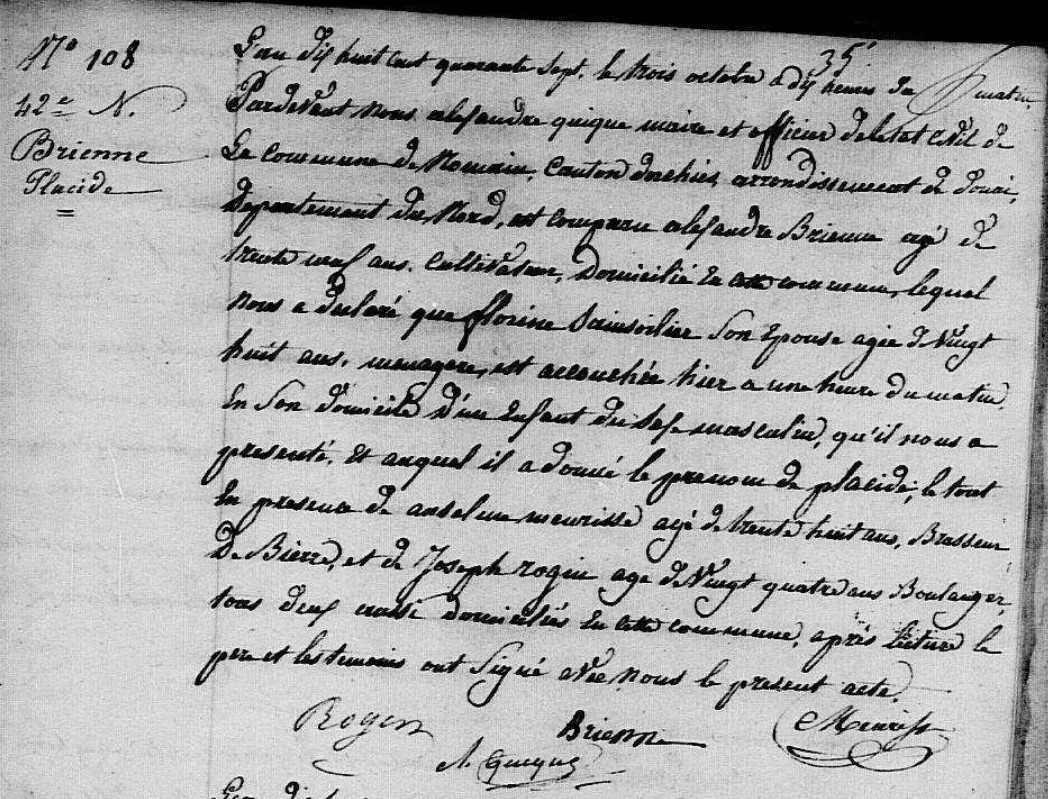 35
N° 108
42e N.
Brienne
Placide
L'an dix huit cent quarante sept, le trois octobre a dix heures du matin
Pardevant nous alexandre quique maire et officier de l'etat civil de
La Commune de Nomain, Canton dorchies, arrondissement de douai,
Departement du Nord, est comparu alexandre Brienne agé de
trente neuf ans. Cultivateur, domicilié en cette commune, lequel
nous a declaré que florine son épouse agée de vingt
huit ans, menagere, est accouchée hier a une heure du matin,
En son domicile d'un Enfant du sexe masculin, qu'il nous a
presenté, Et auquel il a donné le prenom de placide, le tout
En presence de anselme meurisse agé de trente huit ans, Brasseur
De Bierre, et de Joseph rogin age de vingt quatre ans Boulanger,
tous deux aussi domiciliés en cette commune, après lecture le
pere et les temoins ont signé avec nous le present acte.
Rogin Brienne Meuriss
A. Quique